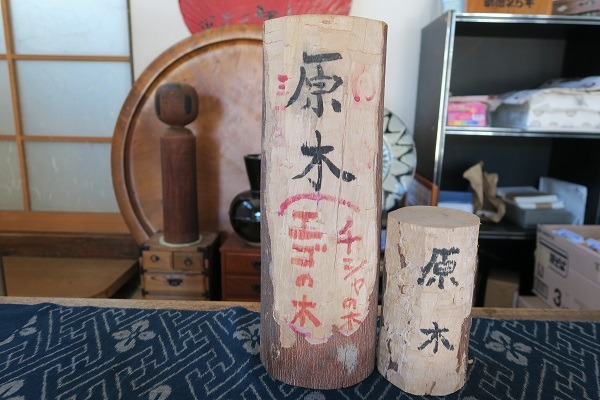 原木
エゴの木
チシャの木
原木